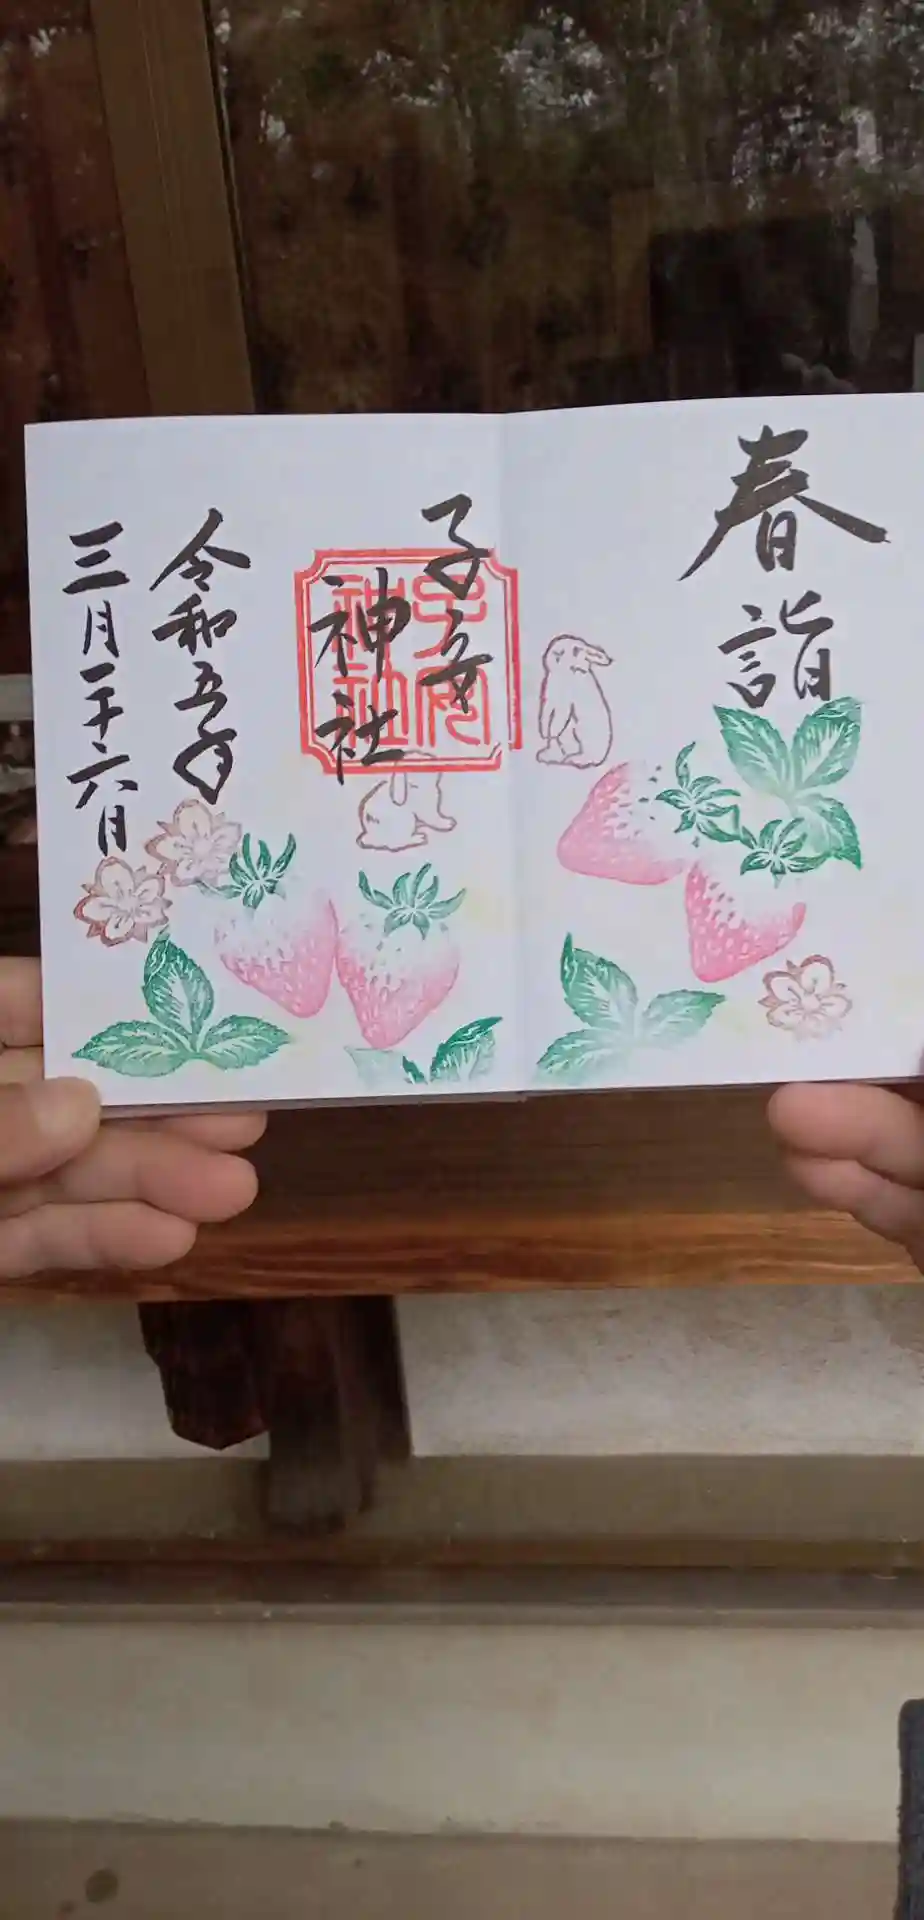 春詣
子安
神社
子安
神社
令和五年
三月二十六日